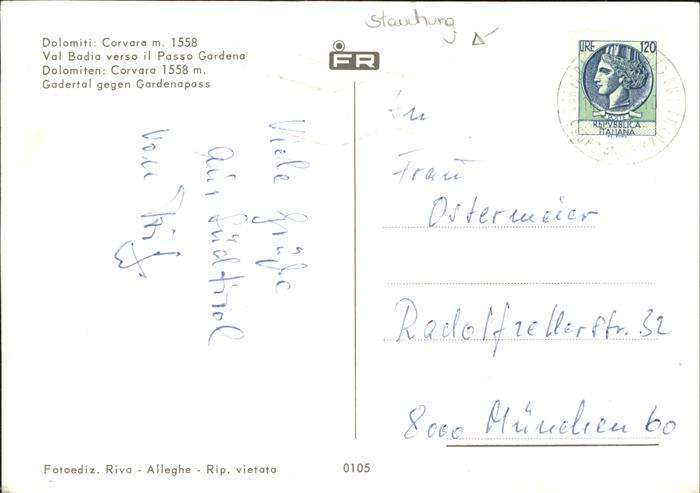 Stauchung
Dolomiti: Corvara m. 1558
Val Badia verso il Passo Gardena
Dolomiten: Corvara 1558 m.
Gadertal gegen Gardenapass
FR
LIRE 120
POSTE
REPVBBLICA
ITALIANA
Viele Grüße
aus Südtirol
von
An
Frau
Ostermeier
Radolfzellerstr. 32
8000 München 60
Fotoediz. Riva - Alleghe - Rip. vietata
0105